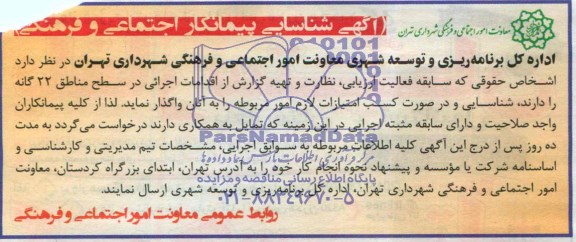 آگهی شناسایی پیمانکار اجتماعی و فرهنگی
معاونت امور اجتماعی و فرهنگی شهرداری تهران
اداره کل برنامه‌ریزی و توسعه شهری معاونت امور اجتماعی و فرهنگی شهرداری تهران در نظر دارد
اشخاص حقوقی که سابقه فعالیت ارزیابی، نظارت و تهیه گزارش از اقدامات اجرائی در سطح مناطق ۲۲ گانه
را دارند، شناسایی و در صورت کسب امتیازات لازم امور مربوطه را به آنان واگذار نماید. لذا از کلیه پیمانکاران
واجد صلاحیت و دارای سابقه مثبته اجرایی در این زمینه که تمایل به همکاری دارند درخواست می‌گردد به مدت
ده روز پس از درج این آگهی کلیه اطلاعات مربوطه به سوابق اجرایی، مشخصات تیم مدیریتی و کارشناسی و
اساسنامه شرکت یا مؤسسه و پیشنهاد نحوه انجام کار خود را به آدرس تهران، ابتدای بزرگراه کردستان، معاونت
امور اجتماعی و فرهنگی شهرداری تهران، اداره کل برنامه‌ریزی و توسعه شهری ارسال نمایند.
روابط عمومی معاونت امور اجتماعی و فرهنگی
ParsNamadData
پایگاه اطلاع رسانی مناقصه و مزایده
۰۲۱-۸۸۳۴۹۶۷۰-۵